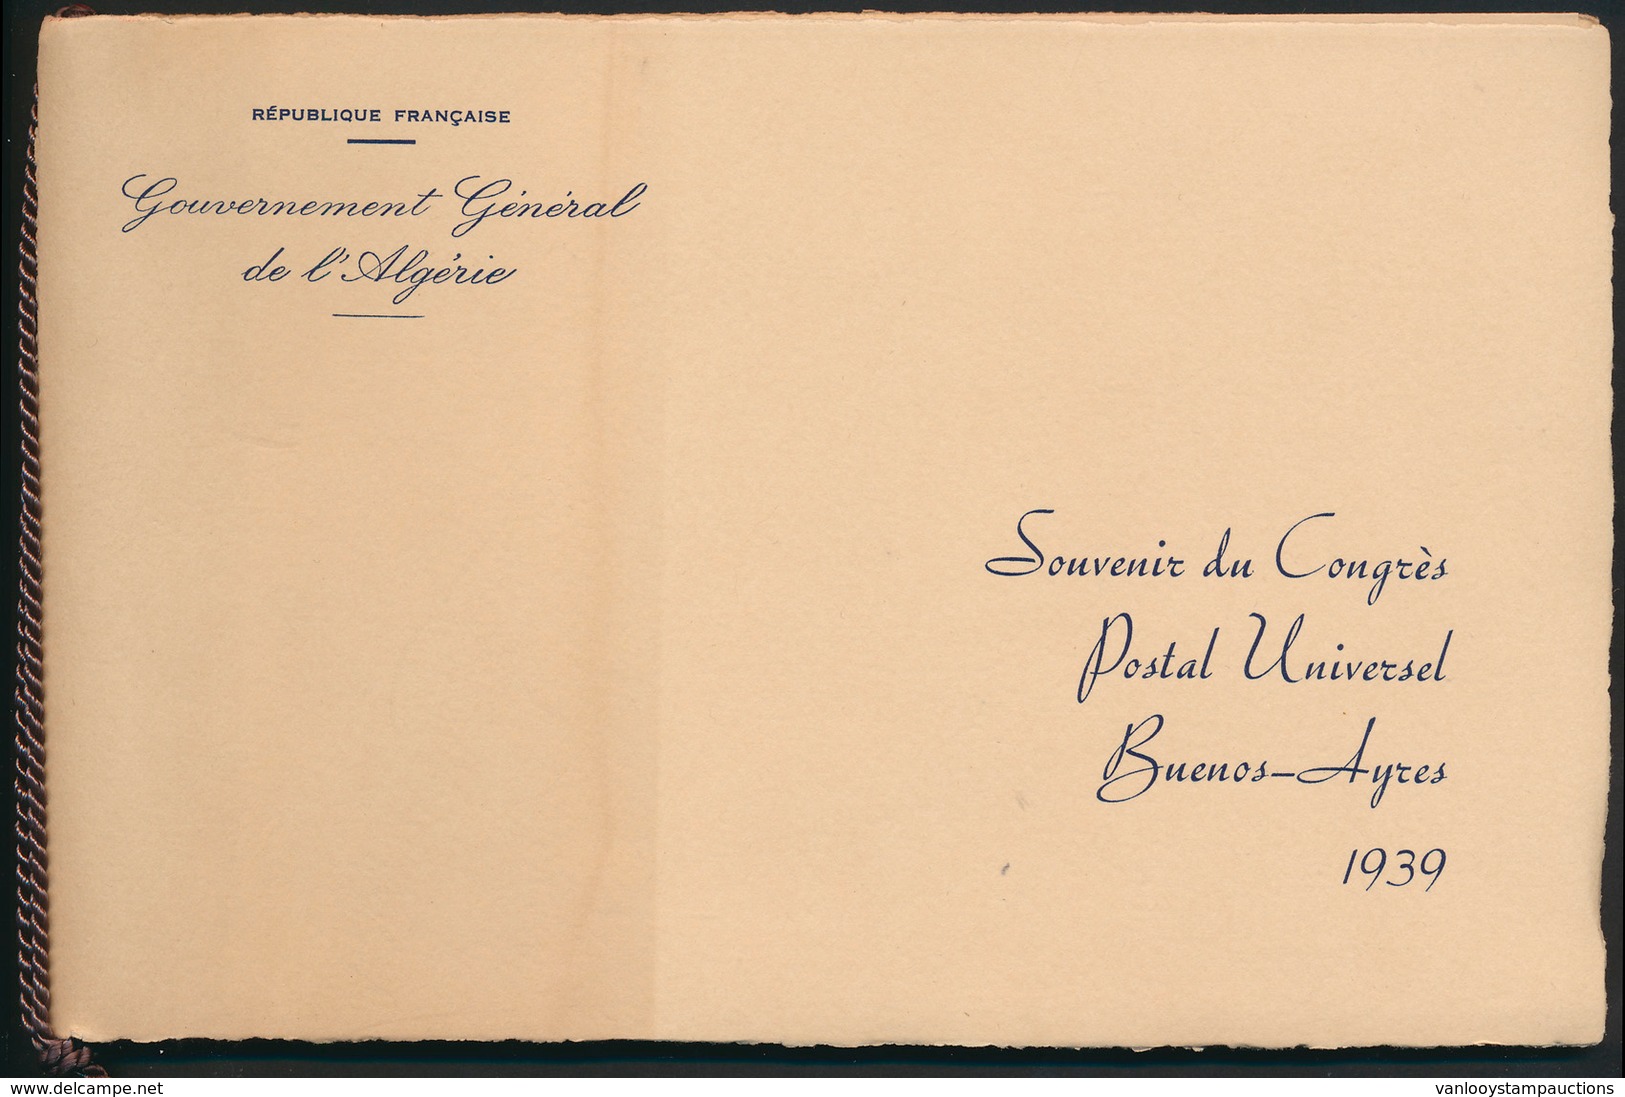 RÉPUBLIQUE FRANÇAISE
Gouvernement Général
de l'Algérie
Souvenir du Congrès
Postal Universel
Buenos-Ayres
1939
www.delcampe.net
vanlooystampauctions